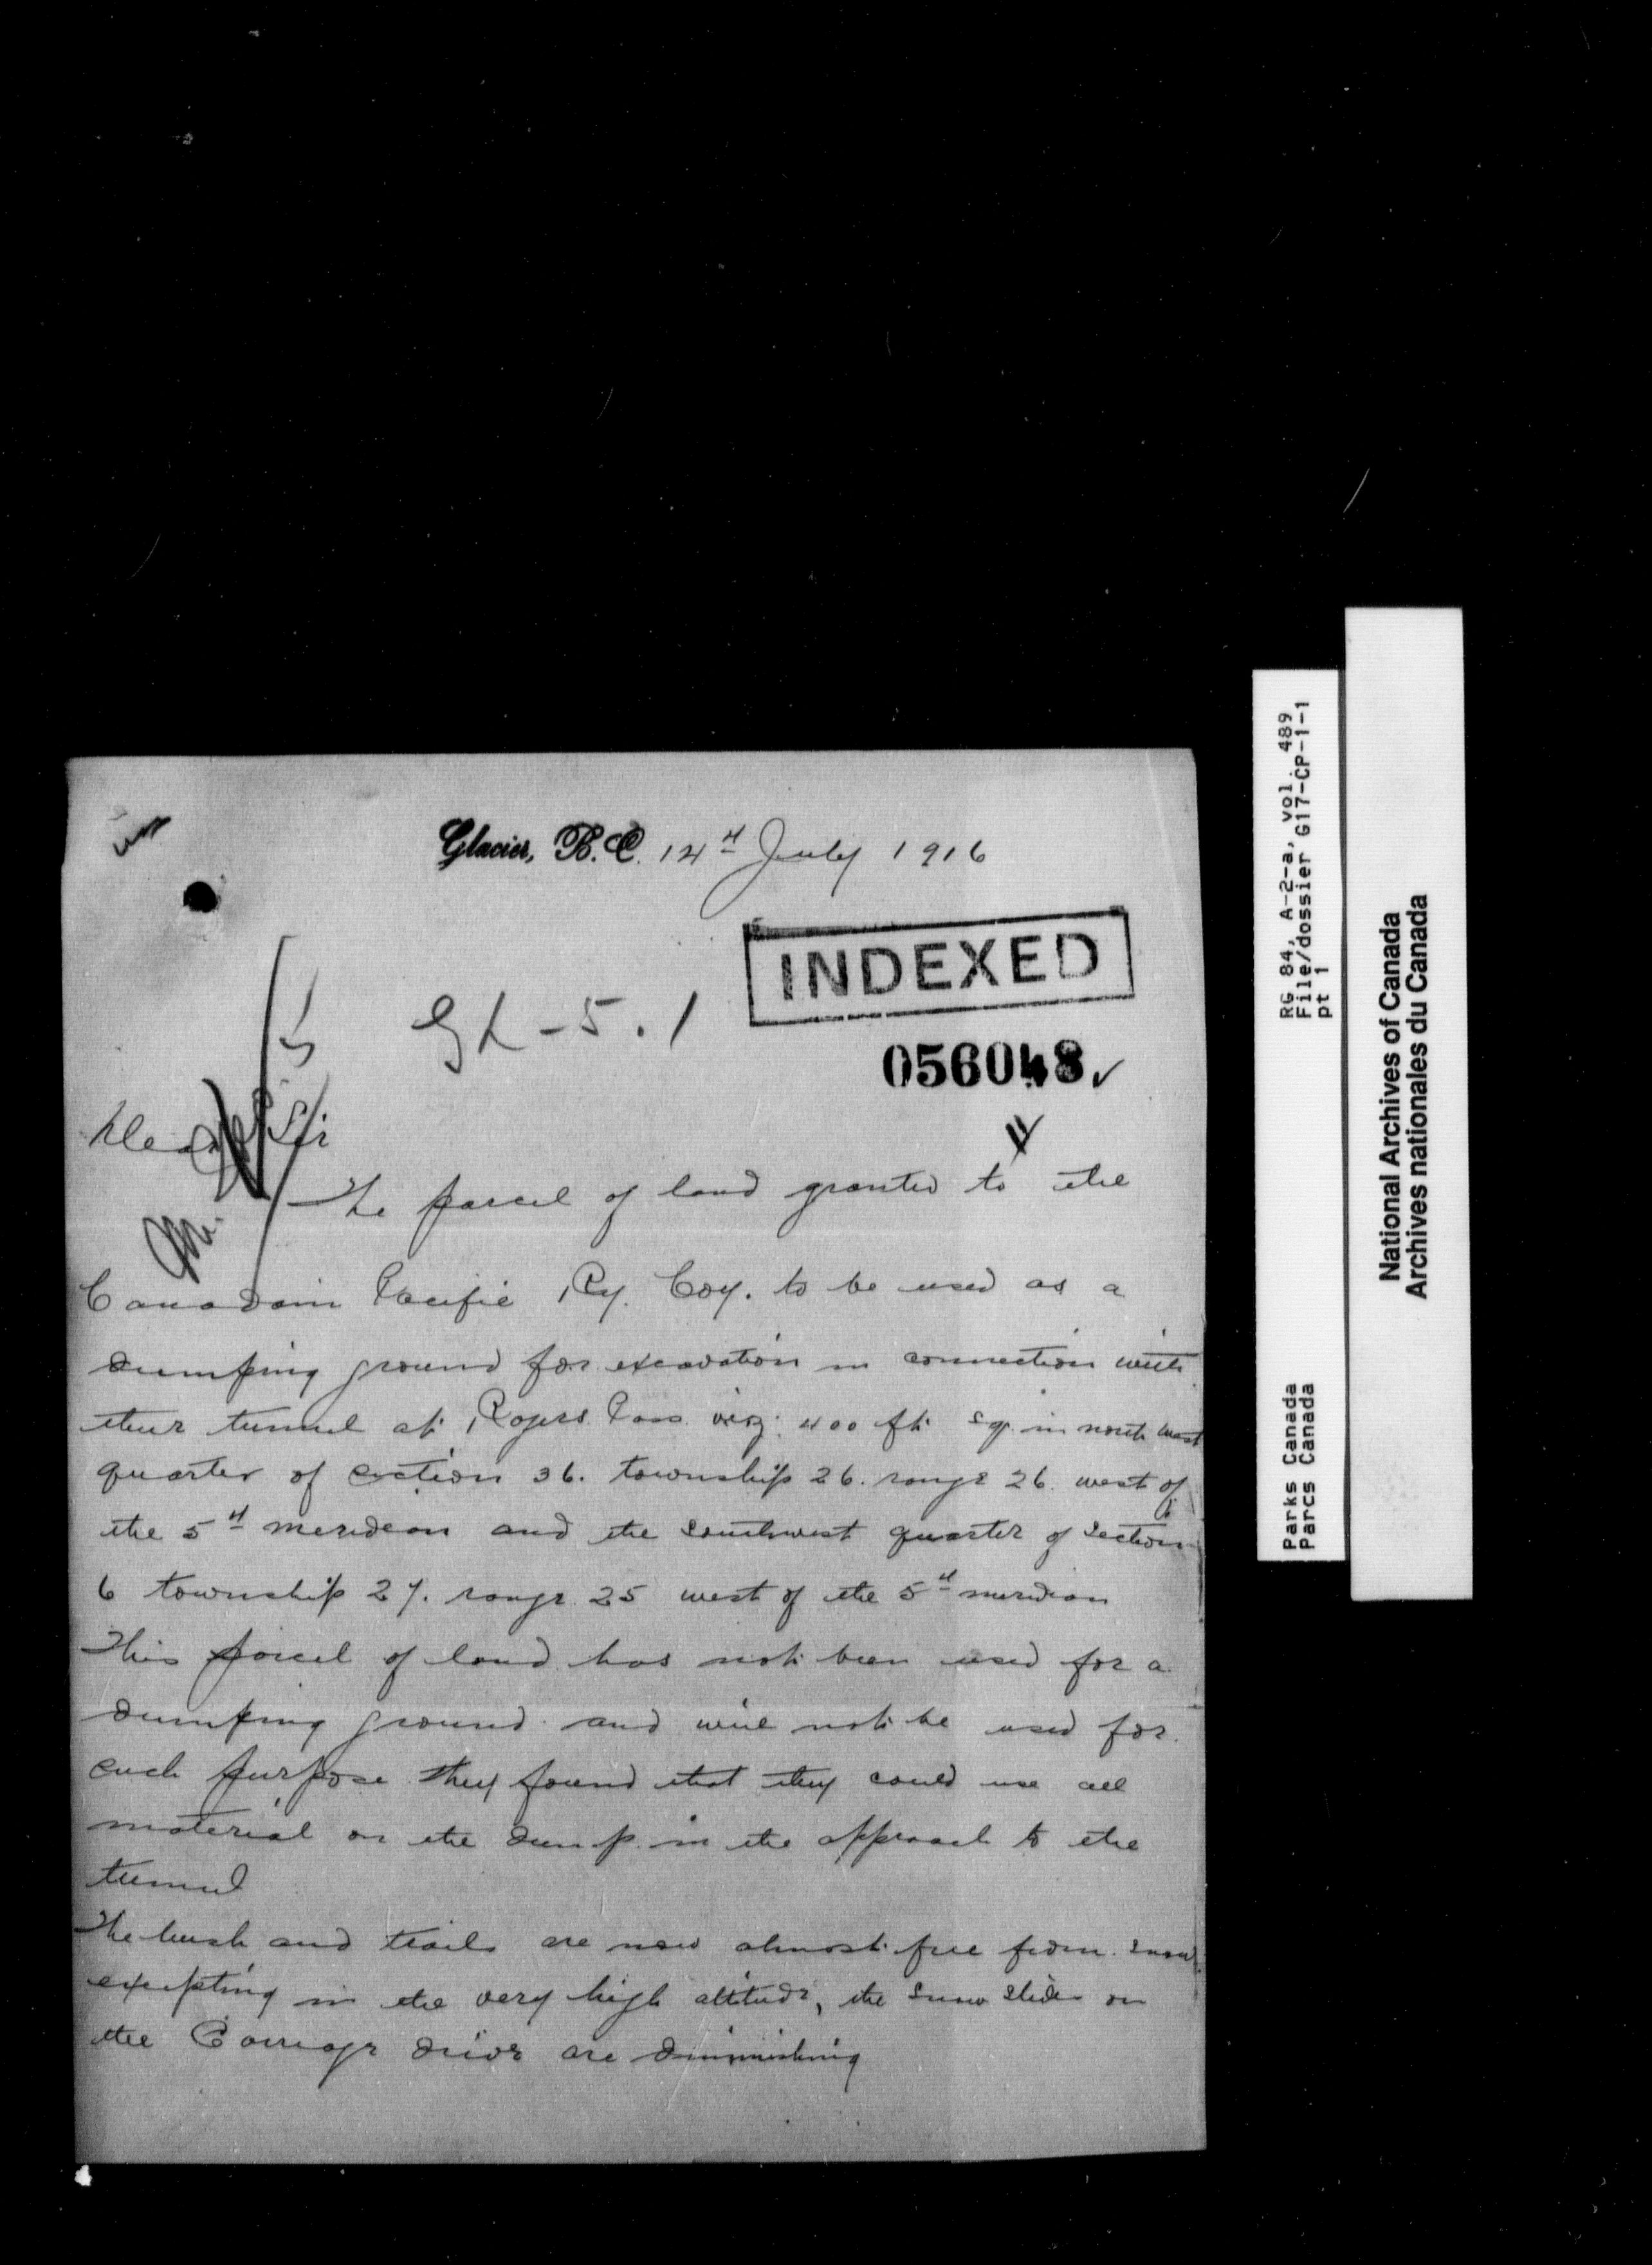 Glacier, B.C. 14th July 1916
INDEXED
GL-5.1
056048 ✓
Dear Sir
The parcel of land granted to the
Canadain Pacific Ry. Coy. to be used as a
dumping ground for excavation in connection with
their tunnel at Rogers Pass viz: 400 ft sq. in north west
quarter of section 36. township 26. range 26. west of
the 5th meridean and the southwest quarter of section
6 township 27. range 25 west of the 5th meridian
This parcel of land has not been used for a
dumping ground and will not be used for
such purpose they found that they could use all
material on the dump in the approach to the
tunnel
The bush and trails are now almost free from snow
excepting in the very high altitude, the snow slides on
the Carriage drive are diminishing
RG 84, A-2-a, vol. 489
File/dossier G17-CP-1-1
pt 1
Parks Canada
Parcs Canada
National Archives of Canada
Archives nationales du Canada